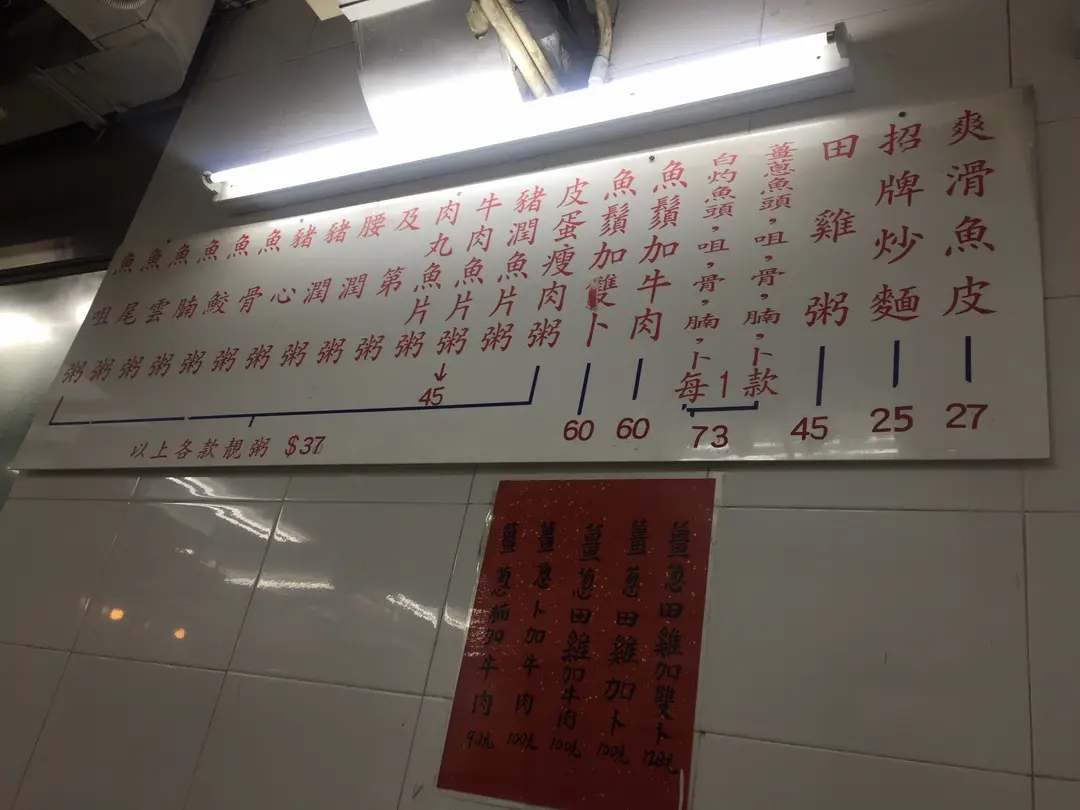 爽滑魚皮 27
招牌炒麵 25
田雞粥 45
薑蔥魚頭，咀，骨，腩，卜
白灼魚頭，咀，骨，腩，卜
每1款 73
魚鬚加牛肉 60
魚鬚加雙卜 60
皮蛋瘦肉粥
豬潤魚片粥
牛肉魚片粥 ↓ 45
肉丸魚片粥
及第粥
腰潤粥
豬潤粥
豬心粥
魚骨粥
魚鮫粥
魚腩粥
魚雲粥
魚尾粥
魚咀粥
以上各款靚粥 $37
薑葱田雞加雙卜 128元
薑葱田雞加卜 100元
薑葱田雞加牛肉 100元
薑葱卜加牛肉 100元
薑葱腩加牛肉 90元